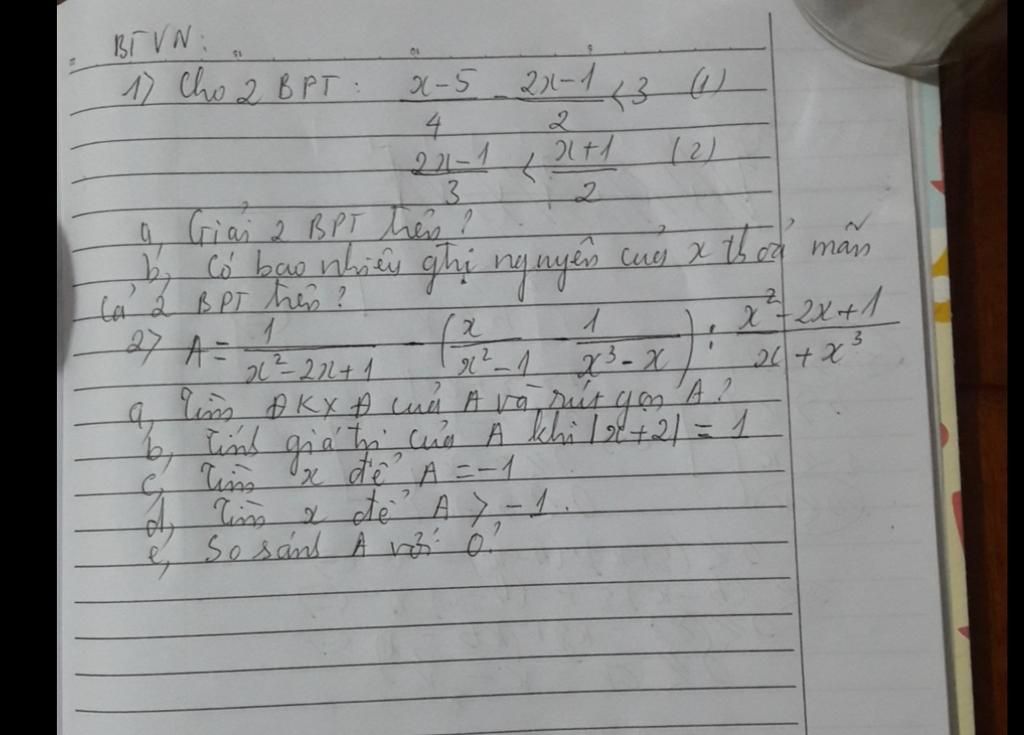 BTVN:
1) Cho 2 BPT: (x-5)/4 - (2x-1)/2 < 3 (1)
(2x-1)/3 < (x+1)/2 (2)
a, Giải 2 BPT trên?
b, Có bao nhiêu ghị nguyên của x thoả mãn
cả 2 BPT trên?
2) A = 1/(x²-2x+1) - (x/(x²-1) - 1/(x³-x)) : (x²-2x+1)/(x+x³)
a, Tìm ĐKXĐ của A và rút gọn A?
b, Tính giá trị của A khi |x+2| = 1
c, Tìm x để A = -1
d, Tìm x để A > -1.
e, So sánh A với 0.